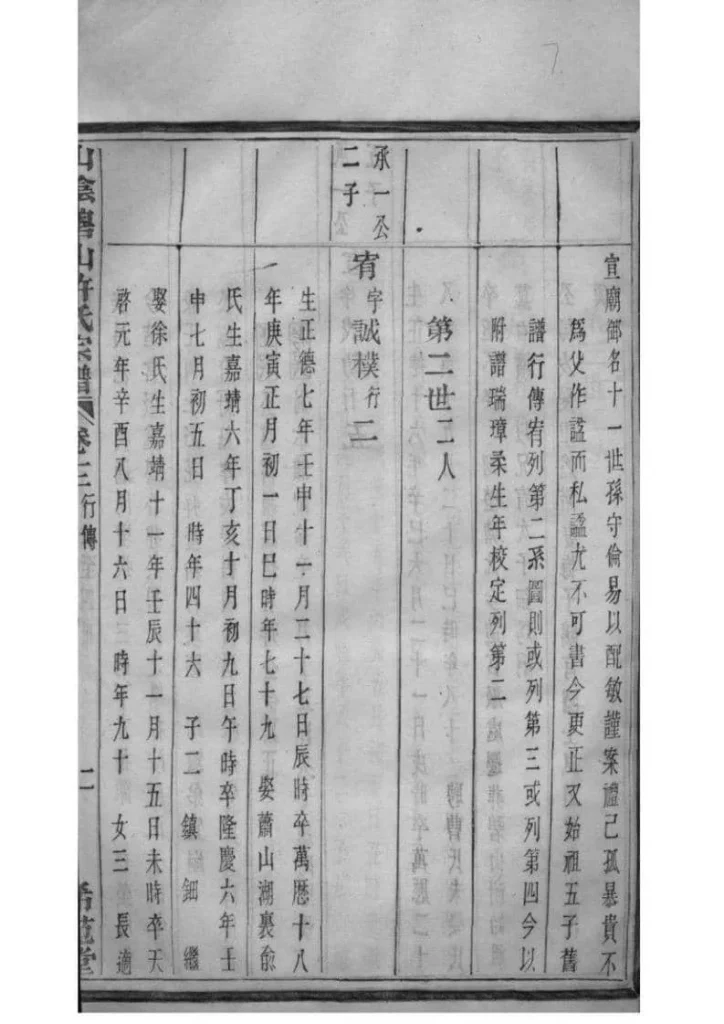 宣廟御名十一世孫守倫易以配敏謹案禮己孤暴貴不
爲父作諡而私諡尤不可書今更正又始祖五子舊
譜行傳宥列第二系圖則或列第三或列第四今以
附譜瑞璋柔生年校定列第二
第二世二人
承一公
二子
宥字誠樸行二
生正德七年壬申十一月二十七日辰時卒萬曆十八
年庚寅正月初一日巳時年七十九 娶蕭山湖裏俞
氏生嘉靖六年丁亥十月初九日午時卒隆慶六年壬
申七月初五日 時年四十六 子二 鎮 鈿 繼
娶徐氏生嘉靖十一年壬辰十一月十五日未時卒天
啓元年辛酉八月十六日 時年九十 女三 長適
山陰 山許氏宗譜 卷三 行傳 二